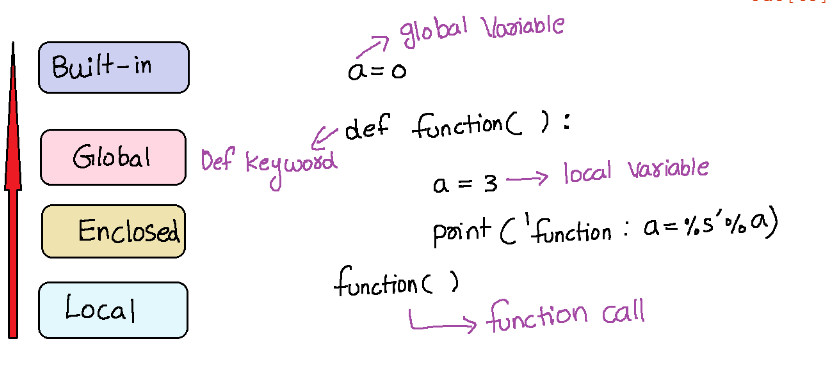 Built-in
Global
Enclosed
Local
global Variable
a = 0
def function( ) :
Def keyword
a = 3
local variable
print ('function : a=%s'%a)
function( )
function call